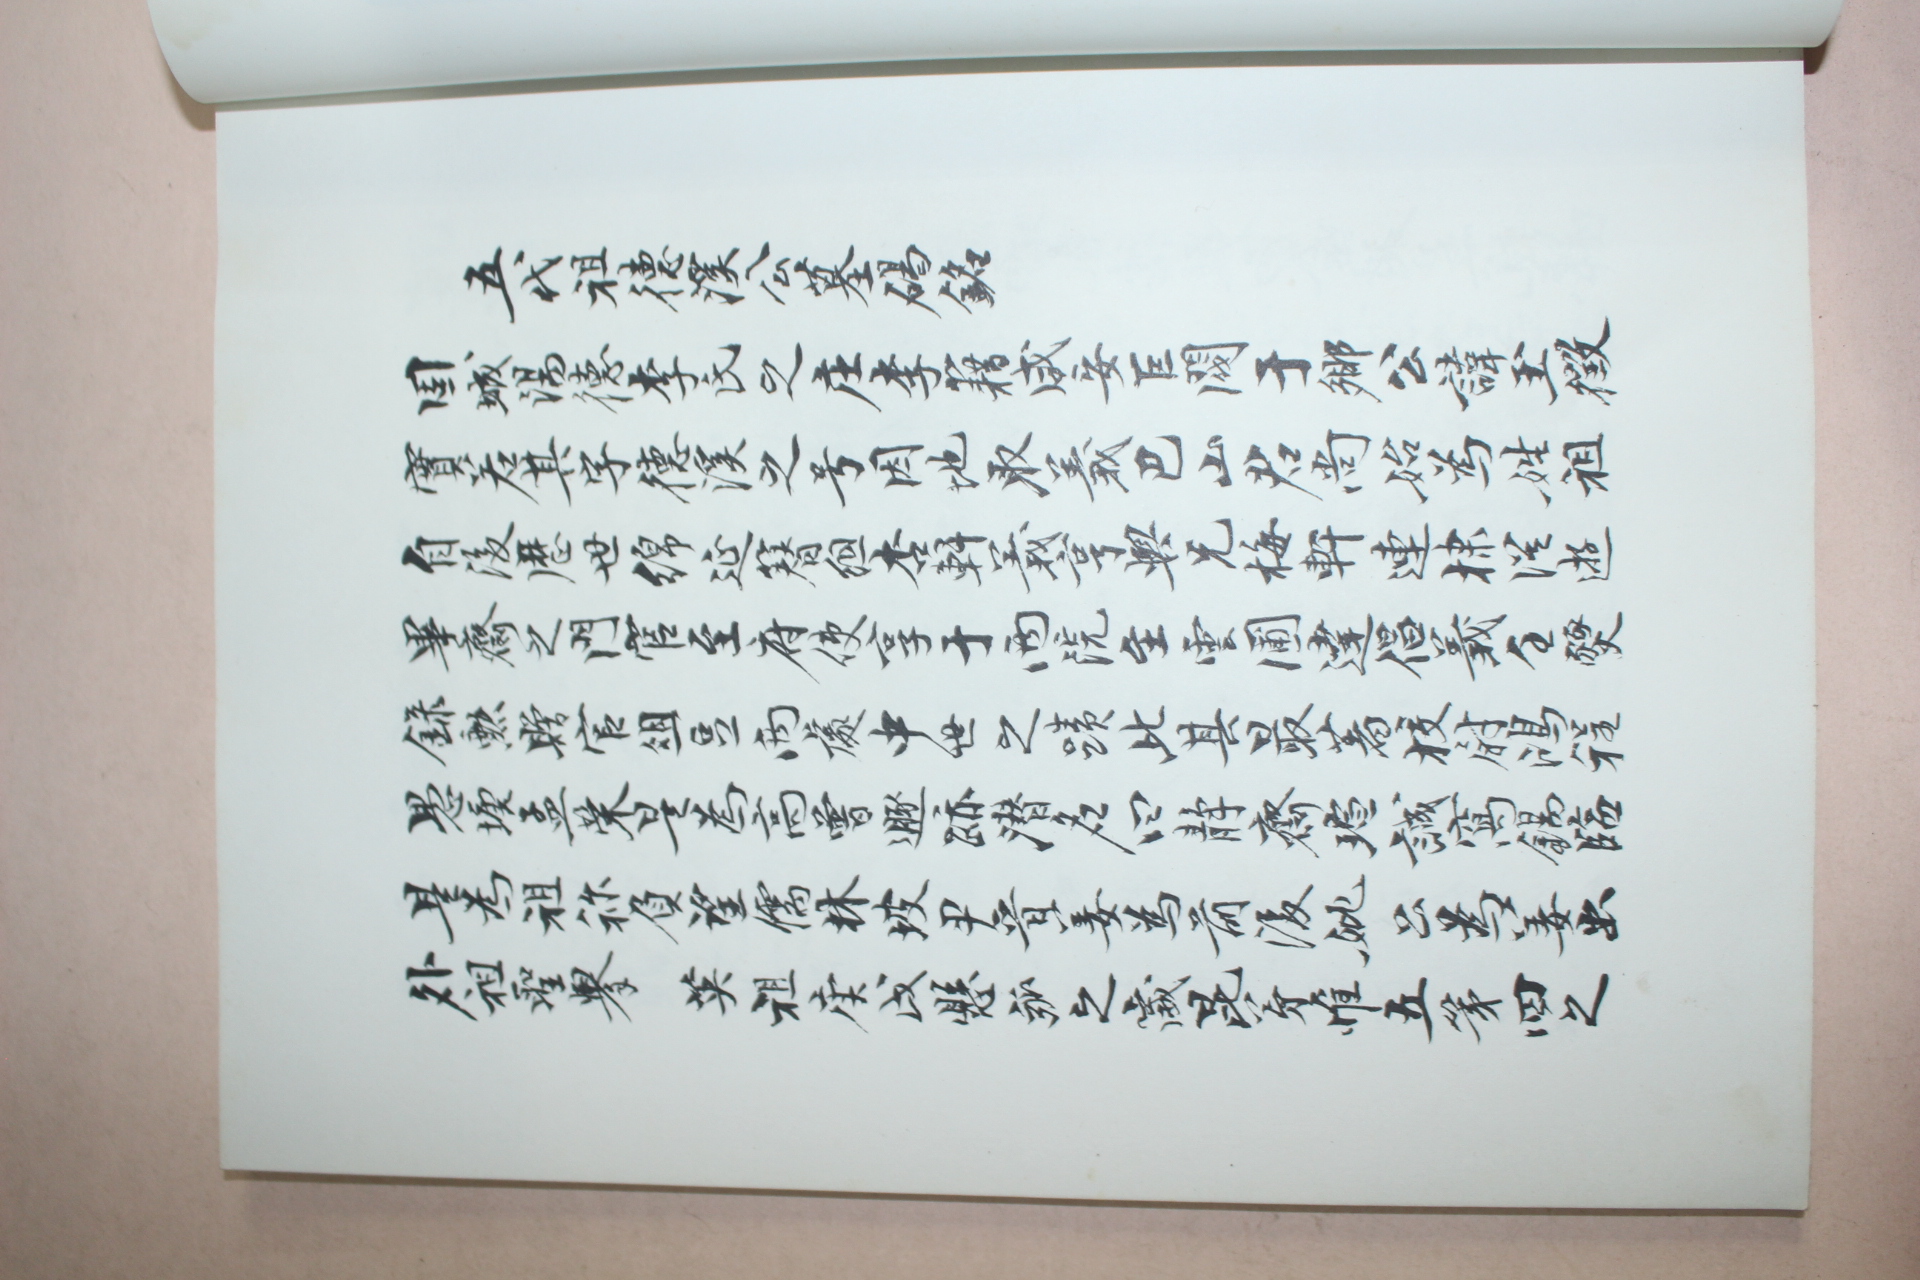 五代祖德溪公墓碣銘
固城湯德李氏之庄李籍咸安巨閥于鄉公諱玉徵
實若其字德溪之号因地取義巴山君尚始爲姓祖
自後歷世綿延簪組杏軒義亨與兄梅軒連棣從遊
畢齋之門官至府使享于兩院至雲圃違倡義全
錄勲贈官俎豆兩處中世之蹟此其最著校尉鴻程
愚壎孟榮是爲高曾遯跡潛名曰靜齋瑄誠窩錫臨
是爲祖祢負望儒林坡尹晋姜爲前後妣公爲姜出
外祖聖擧 英祖庚戌懸弧之歲昆弟惟五第四之